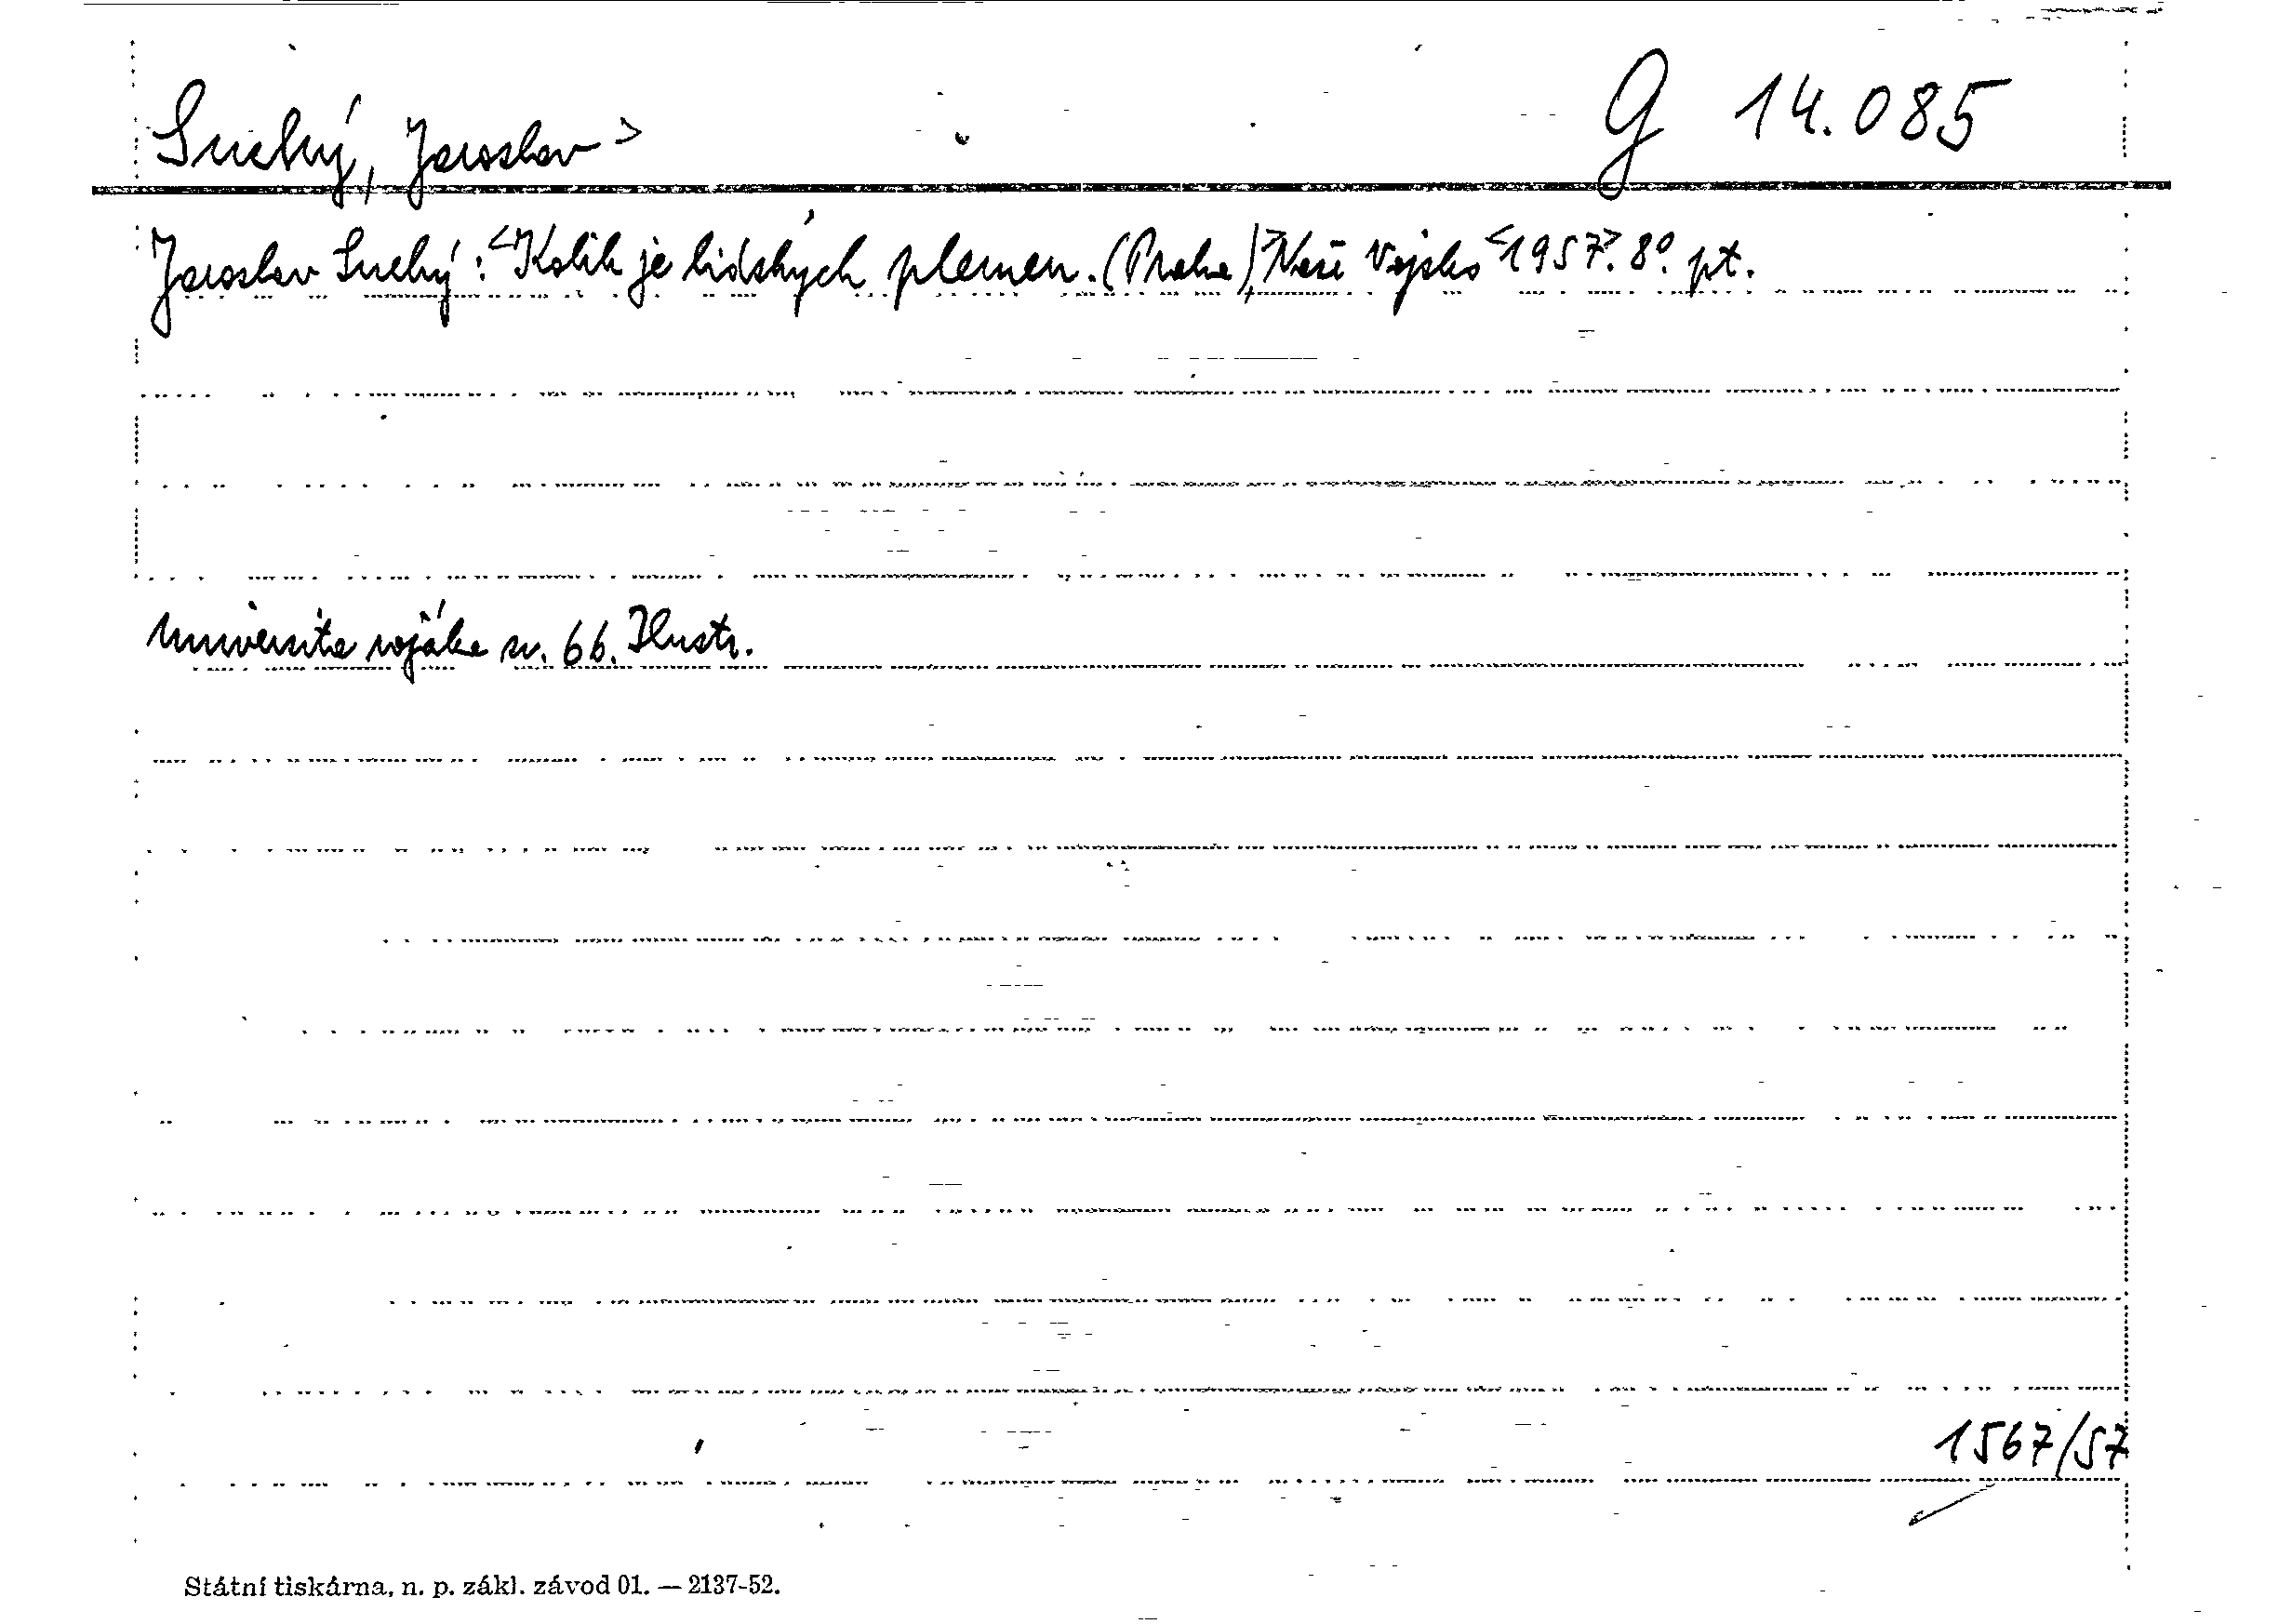 Suchý, Jaroslav> G 14.085
Jaroslav Suchý: <Kolik je lidských plemen. (Praha),> Naše Vojsko <1957>. 8°. pt.
Universita vojáka sv. 66. Ilustr.
1567/57
Státní tiskárna, n. p. zákl. závod 01. — 2137-52.